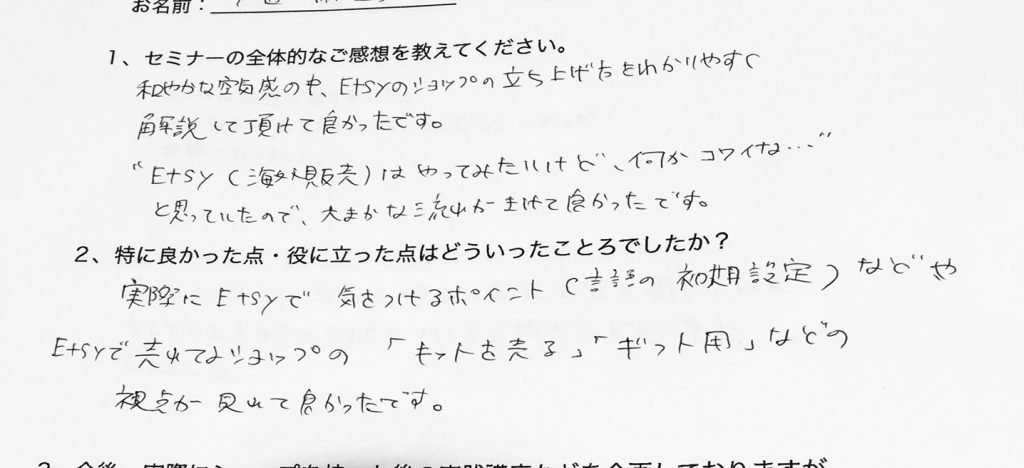 お名前：
1、セミナーの全体的なご感想を教えてください。
和やかな空気感の中、Etsyのショップの立ち上げ方をわかりやすく
解説して頂けて良かったです。
"Etsy(海外販売)はやってみたいけど、何かコワイな…"
と思っていたので、大まかな流れが掴けて良かったです。
2、特に良かった点・役に立った点はどういったことろでしたか？
実際にEtsyで気をつけるポイント(言語の初期設定)などや
Etsyで売れてるショップの「セットを売る」「ギフト用」などの
視点が見れて良かったです。
3、今後、実際にショップを持った後の実践講座などを企画しておりますが